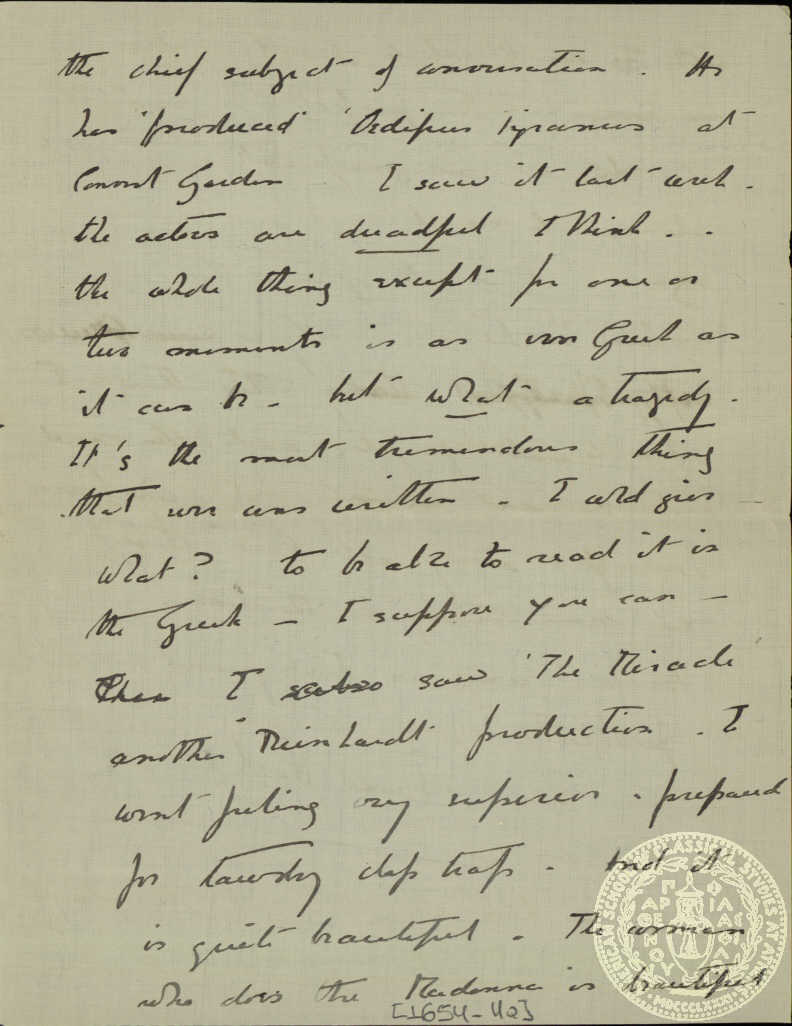 the chief subject of conversation. He
has 'produced' 'Oedipus Tyrannus at
Covent Garden I saw it last week.
the actors are dreadful I think. .
the whole thing except for one or
two moments is as un Greek as
it can be - but what a tragedy.
It's the most tremendous thing
that ever was written - I wld give
what? to be able to read it in
the Greek - I suppose you can -
Then I saw 'The Miracle'
another Reinhardt production. I
went feeling very superior - prepared
for tawdry clap trap - And it
is quite beautiful. The woman
who does the Madonna is beautiful
[1654-42]
AMERICAN SCHOOL OF CLASSICAL STUDIES AT ATHENS
ΠΑΡΘΕΝΟΥ ΦΙΛΑΣ ΦΙΛΑΙ
MDCCCLXXXI